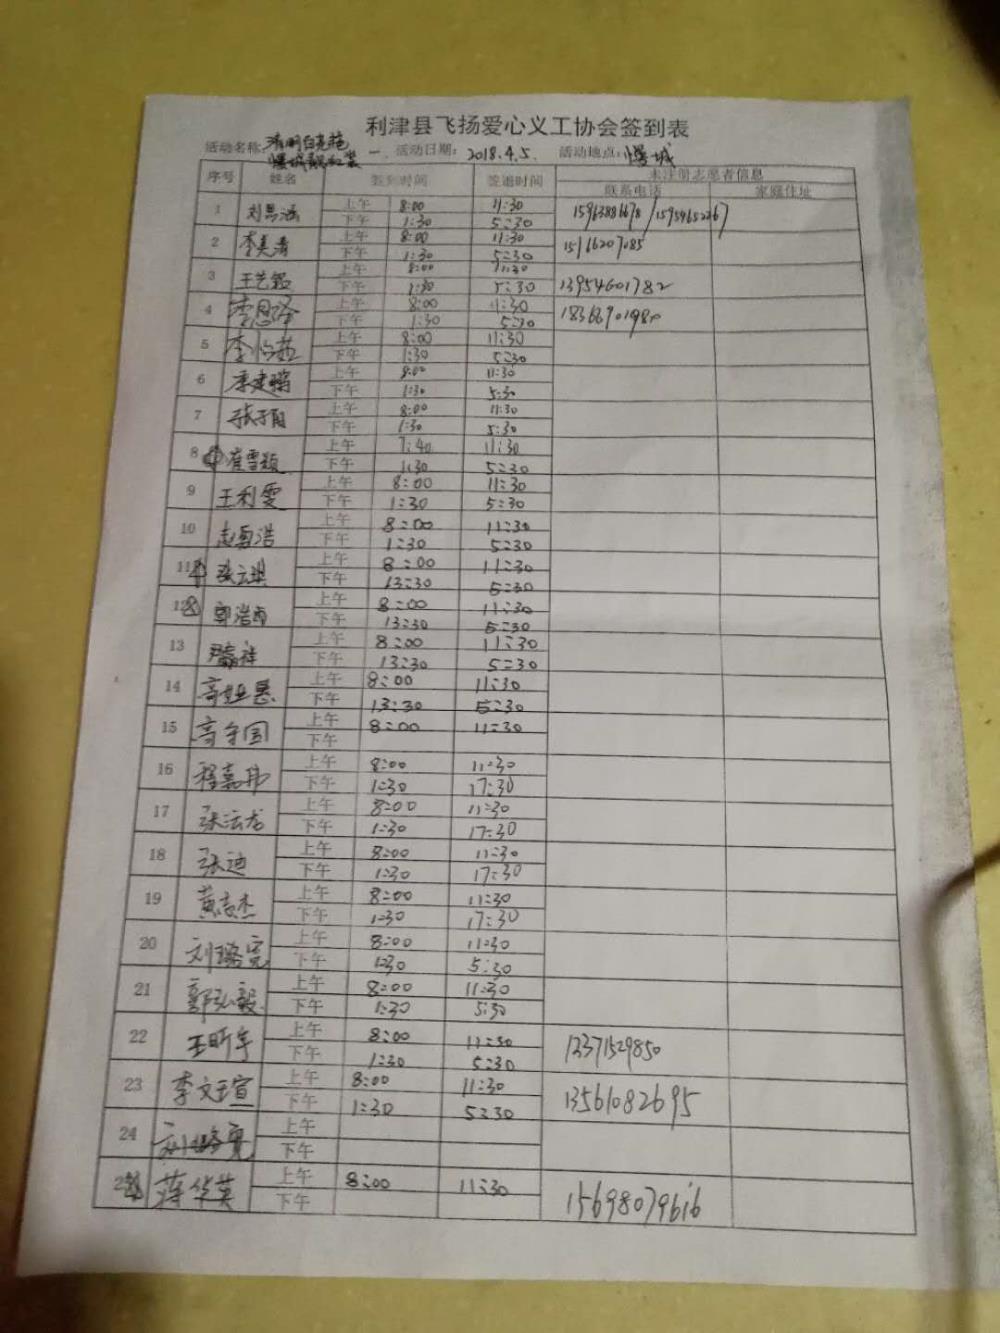 利津县飞扬爱心义工协会签到表
活动名称: 清明 活动日期: 2018.4.5. 活动地点: 城
序号 姓名 签到时间 签退时间 未注册志愿者信息
联系电话 家庭住址
1 刘思涵 上午 8:00 11:30
下午 1:30 5:30
2 李美 上午 8:00 11:30 15166207085
下午 1:30 5:30
3 王艺 上午 8:00 11:30
下午 1:30 5:30 13954601782
4 李恩泽 上午 8:00 11:30
下午 1:30 5:30
5 李怡 上午 8:00 11:30
下午 1:30 5:30
6 李建 上午 8:00 11:30
下午 1:30 5:30
7 张子 上午 8:00 11:30
下午 1:30 5:30
8 崔雪颖 上午 7:40 11:30
下午 1:30 5:30
9 王利雯 上午 8:00 11:30
下午 1:30 5:30
10 赵 浩 上午 8:00 11:30
下午 1:30 5:30
11 张云琪 上午 8:00 11:30
下午 13:30 5:30
12 郭浩 上午 8:00 11:30
下午 13:30 5:30
13 祥 上午 8:00 11:30
下午 13:30 5:30
14 高 上午 8:00 11:30
下午 13:30 5:30
15 高守国 上午 8:00 11:30
下午
16 程嘉伟 上午 8:00 11:30
下午 1:30 17:30
17 张云龙 上午 8:00 11:30
下午 1:30 17:30
18 张迪 上午 8:00 11:30
下午 1:30 17:30
19 黄志杰 上午 8:00 11:30
下午 1:30 17:30
20 刘璐宽 上午 8:00 11:30
下午 1:30 5:30
21 郭弘毅 上午 8:00 11:30
下午 1:30 5:30
22 王昕宇 上午 8:00 11:30 13371529850
下午 1:30 5:30
23 李文萱 上午 8:00 11:30
下午 1:30 5:30 13561082695
24 上午
下午
蒋华英 上午 8:00 11:30
下午 15698079616